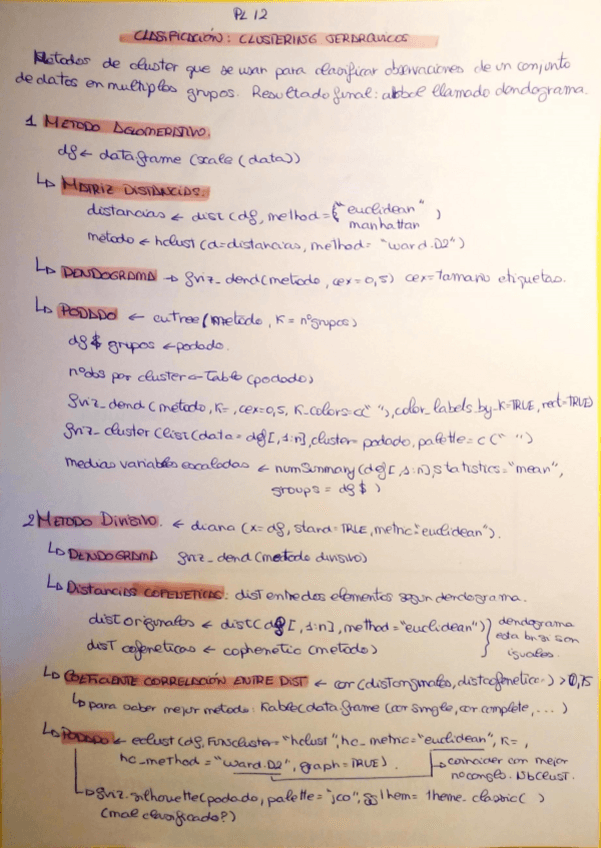 PL 12
CLASIFICACIÓN: CLUSTERING JERÁRQUICOS
Métodos de cluster que se usan para clasificar observaciones de un conjunto
de datos en multiples grupos. Resultado final: arbol llamado dendograma.
1 METODO AGLOMERATIVO.
df ← data.frame (scale (data))
↳ MATRIZ DISTANCIAS:
distancias ← dist (df, method = { "euclidean" )
manhattan
metodo ← hclust (d=distancias, method= "ward.D2")
↳ DENDOGRAMA → fviz_dend(metodo, cex=0,5) cex=tamano etiquetas.
↳ PODADO ← cutree(metodo, K = nºgrupos)
df $ grupos ← podado.
nºobs por cluster ← Table (podado)
fviz_dend (metodo, K= , cex=0,5, K_colors=c(" "), color_labels_by_K=TRUE, rect=TRUE)
fviz_cluster (list (data = df[,1:n], cluster= podado, palette= c (" ")
medias variables escaladas ← numSummary (df[,1:n], statistics="mean",
groups = df $ )
2 METODO DIVISIVO. ← diana (x= df, stand= TRUE, metric="euclidean").
↳ DENDOGRAMA fviz_dend (metodo divisivo)
↳ DISTANCIAS COFENETICAS: dist entre dos elementos segun dendograma.
dist originales ← dist( df[,1:n], method="euclidean") } dendograma
dist cofeneticas ← cophenetic (metodo) esta bn si son
iguales.
↳ COEFICIENTE CORRELACIÓN ENTRE DIST ← cor (distoriginales, distcofenetica-) > 0,75
↳ para saber mejor metodo: Kable (data.frame (cor single, cor complete, ... )
↳ PODADO ← eclust (df, FUNcluster= "hclust", hc_metric="euclidean", K= ,
hc_method = "ward.D2", graph = TRUE). ↳ coincider con mejor
no conglo. NbClust.
↳ fviz_silhouette (podado, palette= "jco", ggtheme= theme_classic( )
(mal clasificado?)